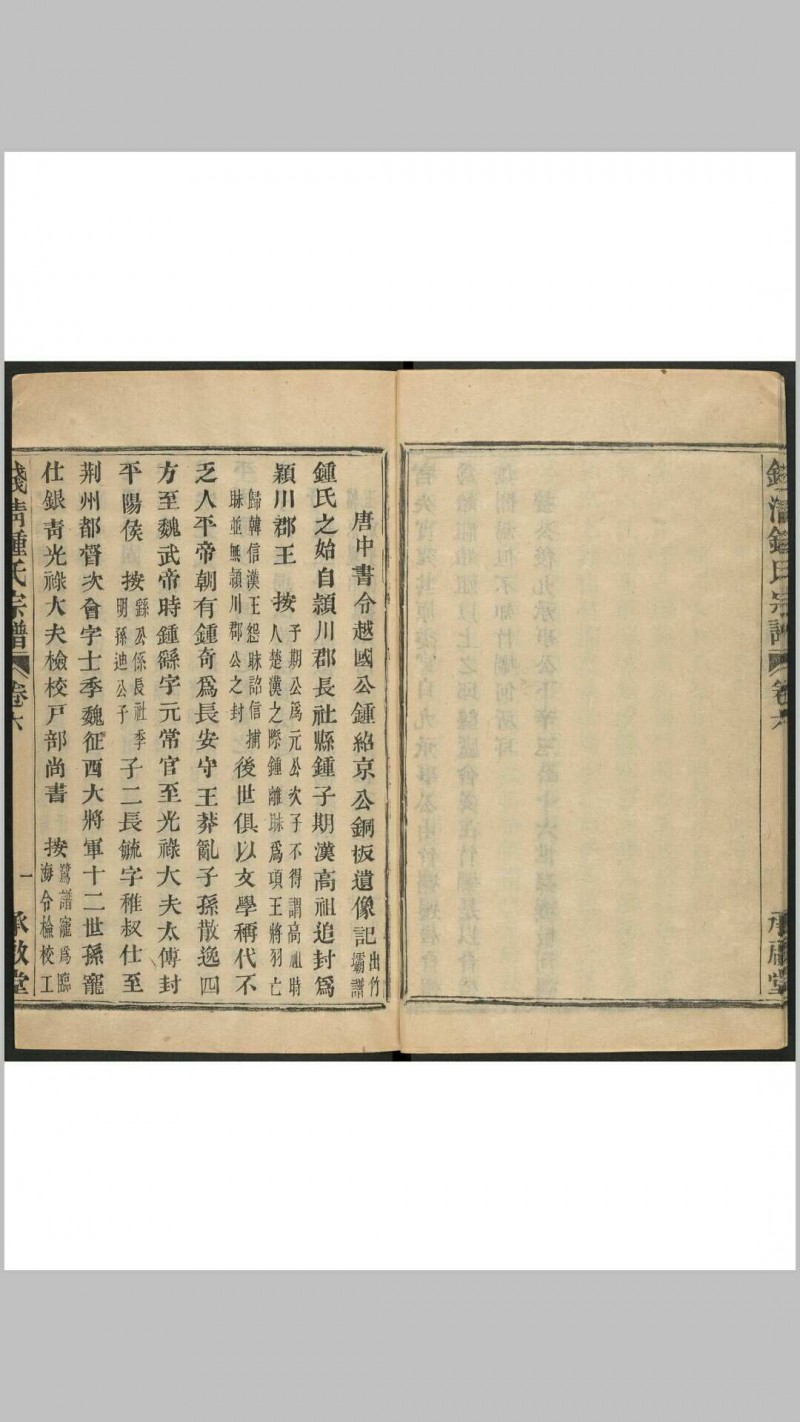 錢清鍾氏宗譜 卷六 承啟堂
唐中書令越國公鍾紹京公銅板遺像記 出竹壩譜
鍾氏之始自頴川郡長社縣鍾子期漢高祖追封爲
頴川郡王 按子期公爲元公次子不得謂高祖時人楚漢之際鍾離昧爲項王將羽亡
歸韓信漢王怨昧詔信捕昧並無頴川郡公之封 後世俱以文學稱代不
乏人平帝朝有鍾奇爲長安守王莽亂子孫散逸四
方至魏武帝時鍾繇字元常官至光祿大夫太傅封
平陽侯 按繇公係長社季明孫迪公子 子二長毓字稚叔仕至
荆州都督次會字士季魏征西大將軍十二世孫寵
仕銀青光祿大夫檢校戸部尚書 按鷺譜寵爲臨海令檢校工
錢清鍾氏宗譜 卷六 一 承啟堂